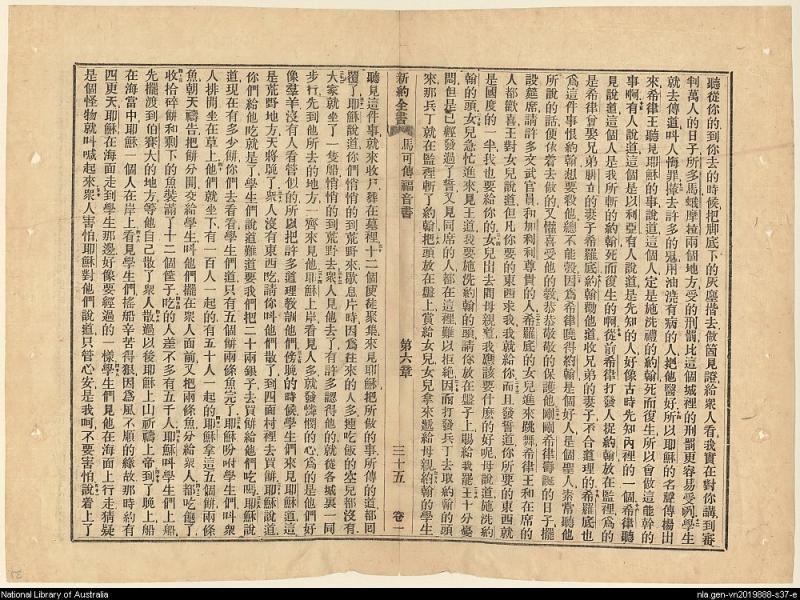 聽從你的到你去的時候把脚底下的灰塵撢去做箇見證給衆人看我實在對你講到審
判萬人的日子所多馬蛾摩拉兩個地方受的刑罰比這個城裡的刑罰更容易受咧學生
就去傳道叫人悔罪攆去許多的鬼用油澆有病的人把他醫好所以耶穌的名聲傳揚出
來希律王聽見耶穌的事說道這個人定是施洗禮的約翰死而復生所以會做這能幹的
事啊有人說道這個是以利亞有人說道是先知的人好像古時先知內裡的一個希律聽
見說道這個人是我所斬的約翰死而復生的啊從前希律打發人捉約翰放在監裡爲的
是希律曾娶兄弟腓立的妻子希羅底約翰勸他道收兄弟的妻子不合道理的希羅底也
爲這件事恨約翰想要殺他總不能彀因爲希律曉得約翰是個好人是個聖人素常聽他
所說的話便依着去做的又懽喜受他的敎恭恭敬敬的保護他剛剛希律壽誕的日子擺
設筵席請許多文武官員和加利利尊貴的人希羅底的女兒進來跳舞希律王和在席的
人都歡喜王對女兒說道但凡你要的東西求我我就給你而且發誓道你所要的東西就
是國度的一半我也要給你的女兒出去問母親道我應該要什麽的好呢母說道施洗約
翰的頭女兒急忙進來見王道我要施洗約翰的頭請你放在盤子上賜給我罷王十分憂
悶但是已經發過了誓又見同席的人都在這裡難以拒絕因而打發兵丁去取約翰的頭
來那兵丁就在監裡斬了約翰把頭放在盤上賞給女兒女兒拿來遞給母親約翰的學生
新約全書 馬可傳福音書 第六章 三十五 卷一
聽見這件事就來收尸葬在墓裡十二個使徒聚集來見耶穌把所做的事所傳的道都回
覆了耶穌說道你們悄悄的到荒野來歇息片時因爲往來的人多連吃飯的空兒都沒有
大家就坐了一隻船悄悄的到荒野去衆人見他去了有許多認得他的就從各城裏一同
步行先到他所去的地方一齊來見他耶穌上岸看見人多就發憐憫的心爲的是他們好
像羣羊沒有人看管似的所以把許多道理敎訓他們傍晚的時候學生們來見耶穌道這
是荒野地方天將晚了衆人沒有東西吃請你叫他們散了到四面村裡去買餅耶穌說
你們給他吃就是了學生們說道難道要我們把二十兩銀子去買餅給他們吃嗎耶穌說
道現在有多少餅你們去看看學生們道只有五個餅兩條魚完了耶穌吩咐學生們叫衆
人排開坐在草上他們就坐下有一百人一起的有五十人一起的耶穌拿這五個餅兩條
魚朝天禱告把餅分開交給學生叫他們擺在衆人面前又把兩條魚分給衆人都吃飽了
收拾碎餅和剩下的魚裝滿了十二個筐子吃的人差不多有五千人耶穌叫學生們上船
先擺渡到伯賽大的地方等他自己散了衆人散過以後耶穌上山祈禱上帝到了晚上船
在海當中耶穌一個人在岸上看見學生們搖船辛苦得狠因爲風不順的緣故那時約有
四更天耶穌在海面走到學生那邊好像要經過的一樣學生們見他在海面上行走猜疑
是個怪物就叫喊起來衆人害怕耶穌對他們說道只管心安是我呵不要害怕說着上了
National Library of Australia
nla.gen-vn2019888-s37-e